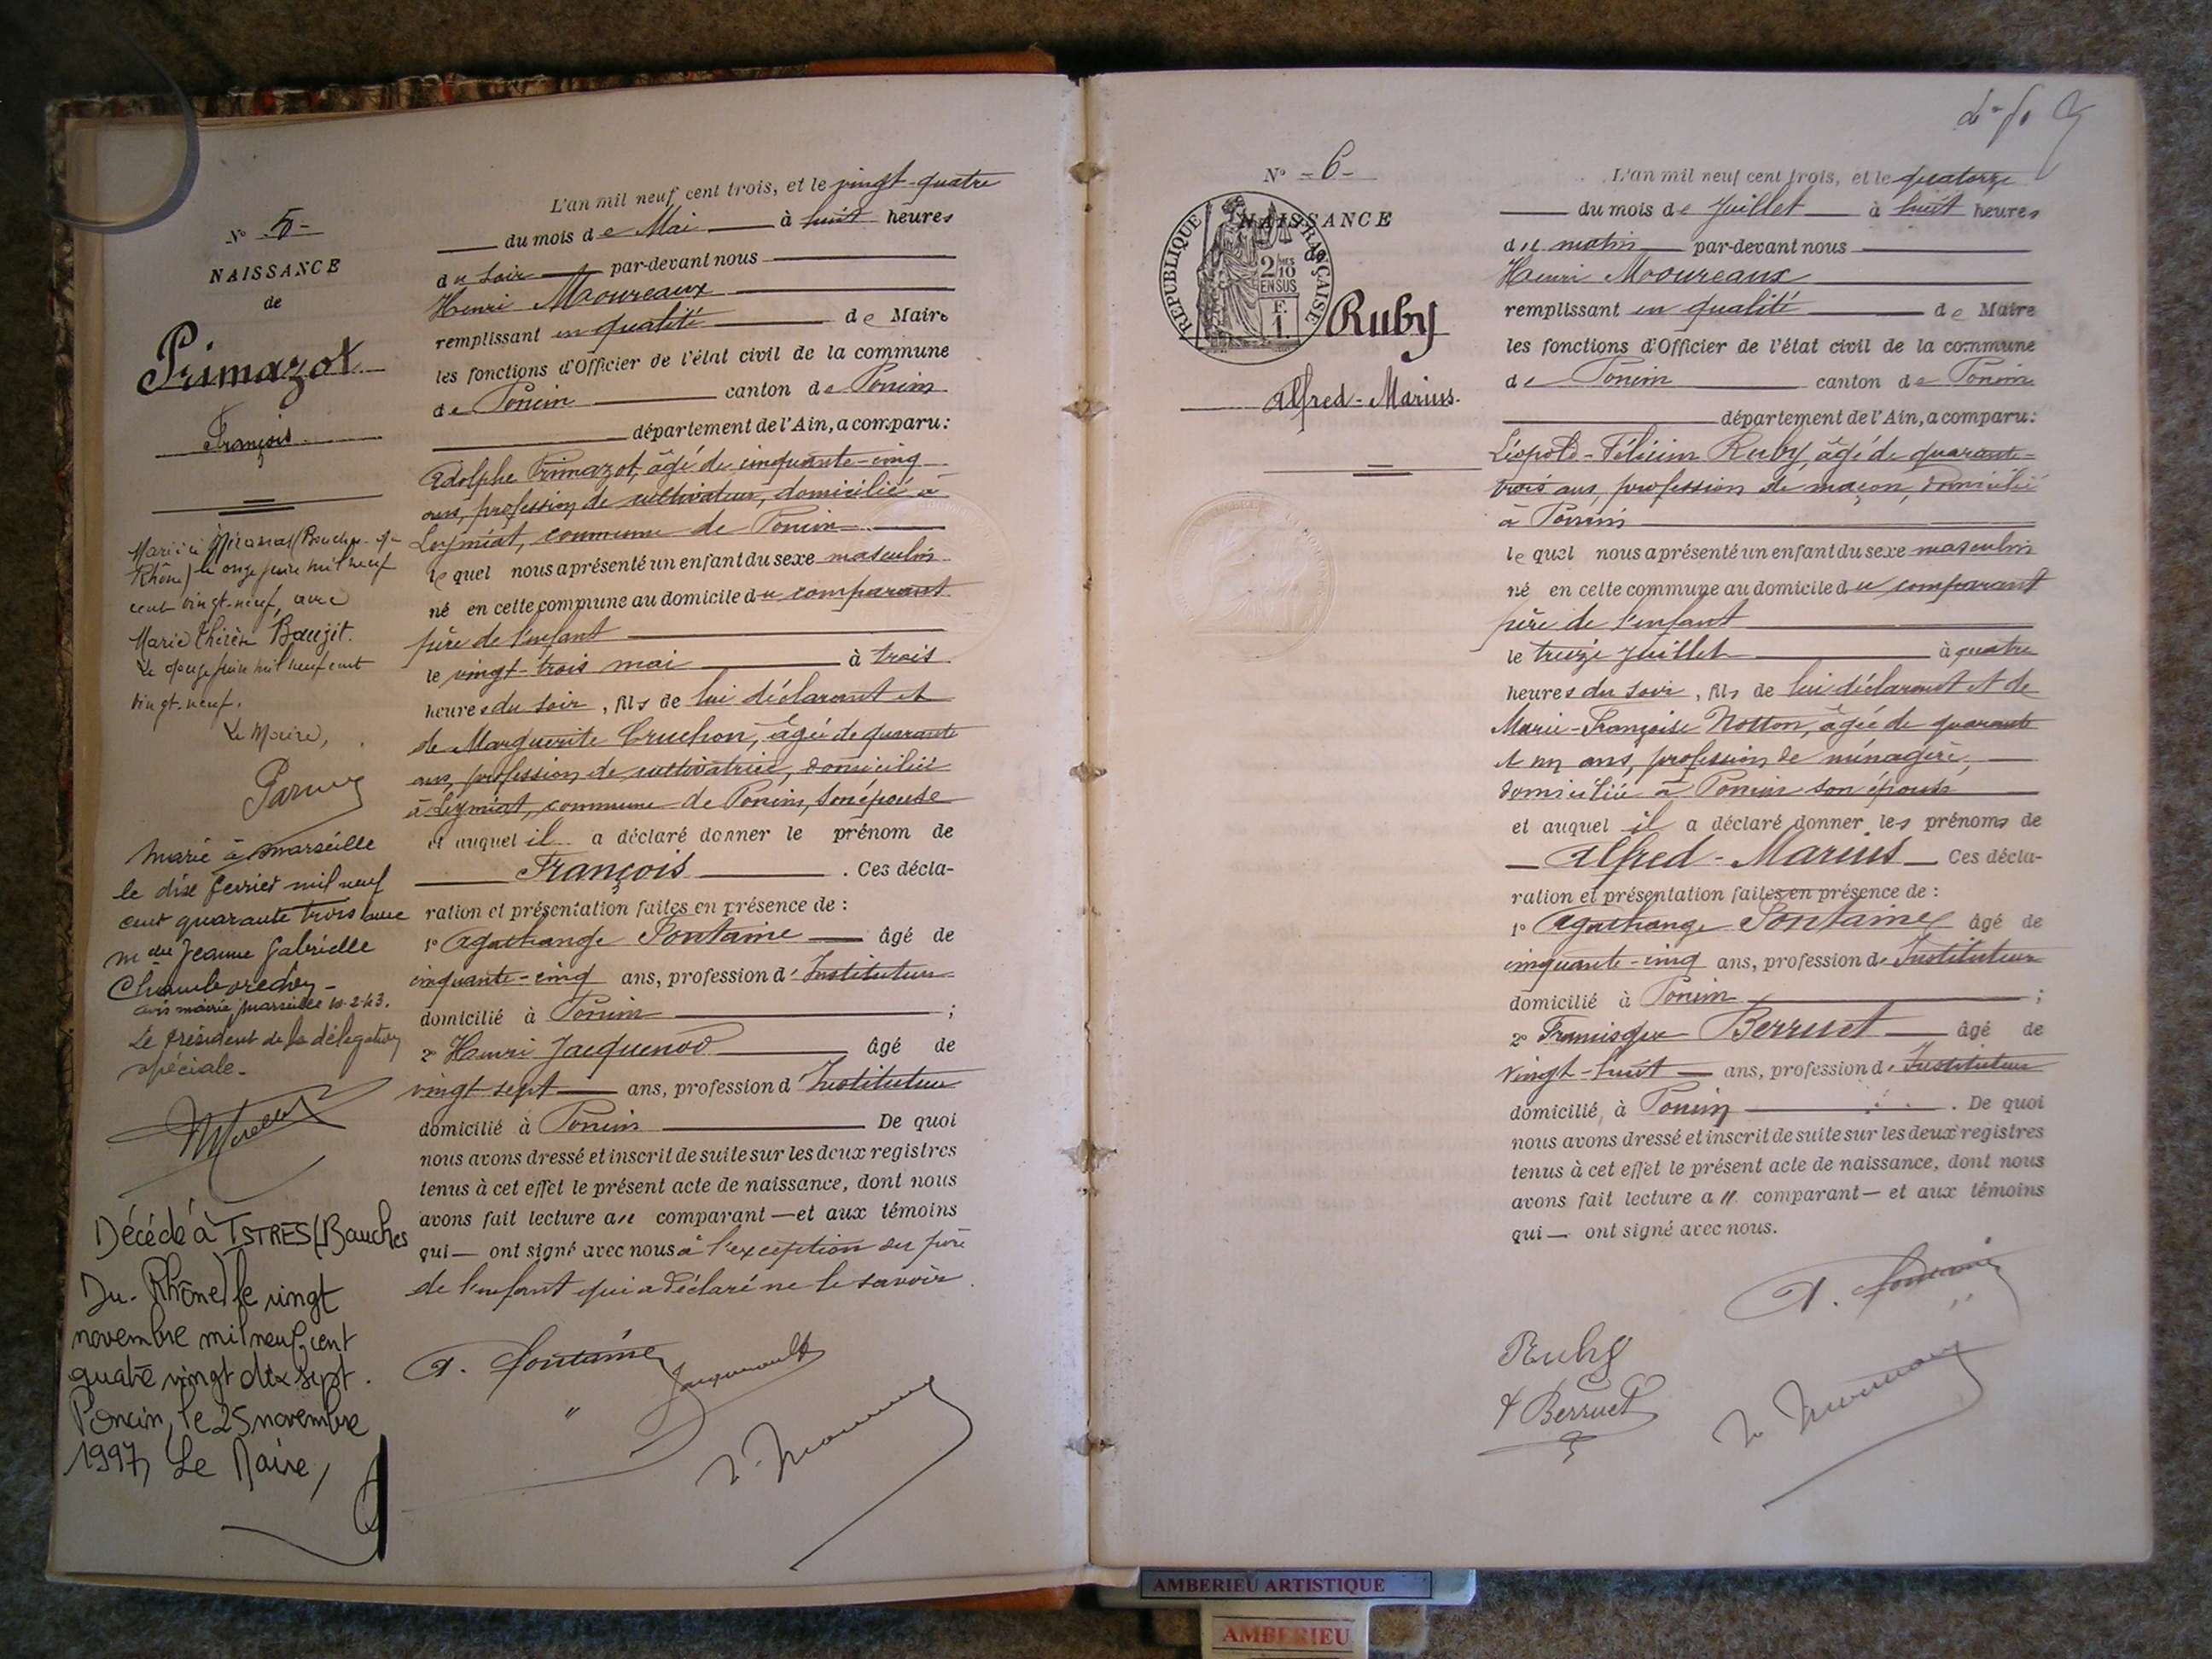 N° 5
NAISSANCE
de
Primazot
François
Marié à Miramas (Bouches-du-
Rhône) le onze juin mil neuf
cent vingt-neuf, avec
Marie Thérèse Baujit.
Le douze juin mil neuf cent
vingt-neuf.
Le Maire,
Marié à Marseille
le dix février mil neuf
cent quarante trois avec
Jeanne Gabrielle
avis mairie Marseille 10-2-43.
Le Président de la délégation
spéciale.
Décédé à ISTRES (Bouches
Du-Rhône) le vingt
novembre mil neuf cent
quatre vingt dix sept.
Poncin, le 25 novembre
1997, Le Maire,
L'an mil neuf cent trois, et le vingt-quatre
du mois de Mai à huit heures
du soir par-devant nous
Henri Moureaux
remplissant en qualité de Maire
les fonctions d'Officier de l'état civil de la commune
de Poncin canton de Poncin
département de l'Ain, a comparu:
Adolphe Primazot, âgé de cinquante-cinq
ans, profession de cultivateur, domicilié à
Leymiat, commune de Poncin
le quel nous a présenté un enfant du sexe masculin
né en cette commune au domicile du comparant
père de l'enfant
le vingt-trois mai à trois
heures du soir, fils de lui déclarant et
de Marguerite Cruchon, âgée de quarante
ans, profession de cultivatrice, domiciliée
à Leymiat, commune de Poncin, son épouse
et auquel il a déclaré donner le prénom de
François. Ces décla-
ration et présentation faites en présence de :
1° Agathange Fontaine âgé de
cinquante-cinq ans, profession d'Instituteur
domicilié à Poncin ;
2° Henri Jacquenod âgé de
vingt-sept ans, profession d'Instituteur
domicilié à Poncin De quoi
nous avons dressé et inscrit de suite sur les deux registres
tenus à cet effet le présent acte de naissance, dont nous
avons fait lecture au comparant — et aux témoins
qui — ont signé avec nous à l'exception du père
de l'enfant qui a déclaré ne le savoir.
A. Fontaine
N° 6
NAISSANCE
de
RÉPUBLIQUE FRANÇAISE
2/10
EN SUS
F.
1.
Ruby
Alfred-Marius.
L'an mil neuf cent trois, et le quatorze
du mois de Juillet à huit heures
du matin par-devant nous
Henri Mooureaux
remplissant en qualité de Maire
les fonctions d'Officier de l'état civil de la commune
de Poncin canton de Poncin
département de l'Ain, a comparu:
Léopold-Félicien Ruby, âgé de quarante-
trois ans, profession de maçon, domicilié
à Poncin
le quel nous a présenté un enfant du sexe masculin
né en cette commune au domicile du comparant
père de l'enfant
le treize juillet à quatre
heures du soir, fils de lui déclarant et de
Marie-Françoise Notton, âgée de quarante
et un ans, profession de ménagère,
domiciliée à Poncin son épouse
et auquel il a déclaré donner les prénoms de
Alfred-Marius Ces décla-
ration et présentation faites en présence de :
1° Agathange Fontaine âgé de
cinquante-cinq ans, profession d'Instituteur
domicilié à Poncin ;
2° Francisque Berruet âgé de
vingt-huit ans, profession d'Instituteur
domicilié à Poncin. De quoi
nous avons dressé et inscrit de suite sur les deux registres
tenus à cet effet le présent acte de naissance, dont nous
avons fait lecture au comparant — et aux témoins
qui — ont signé avec nous.
A. Fontaine
Ruby
F Berruet
AMBERIEU ARTISTIQUE
AMBERIEU